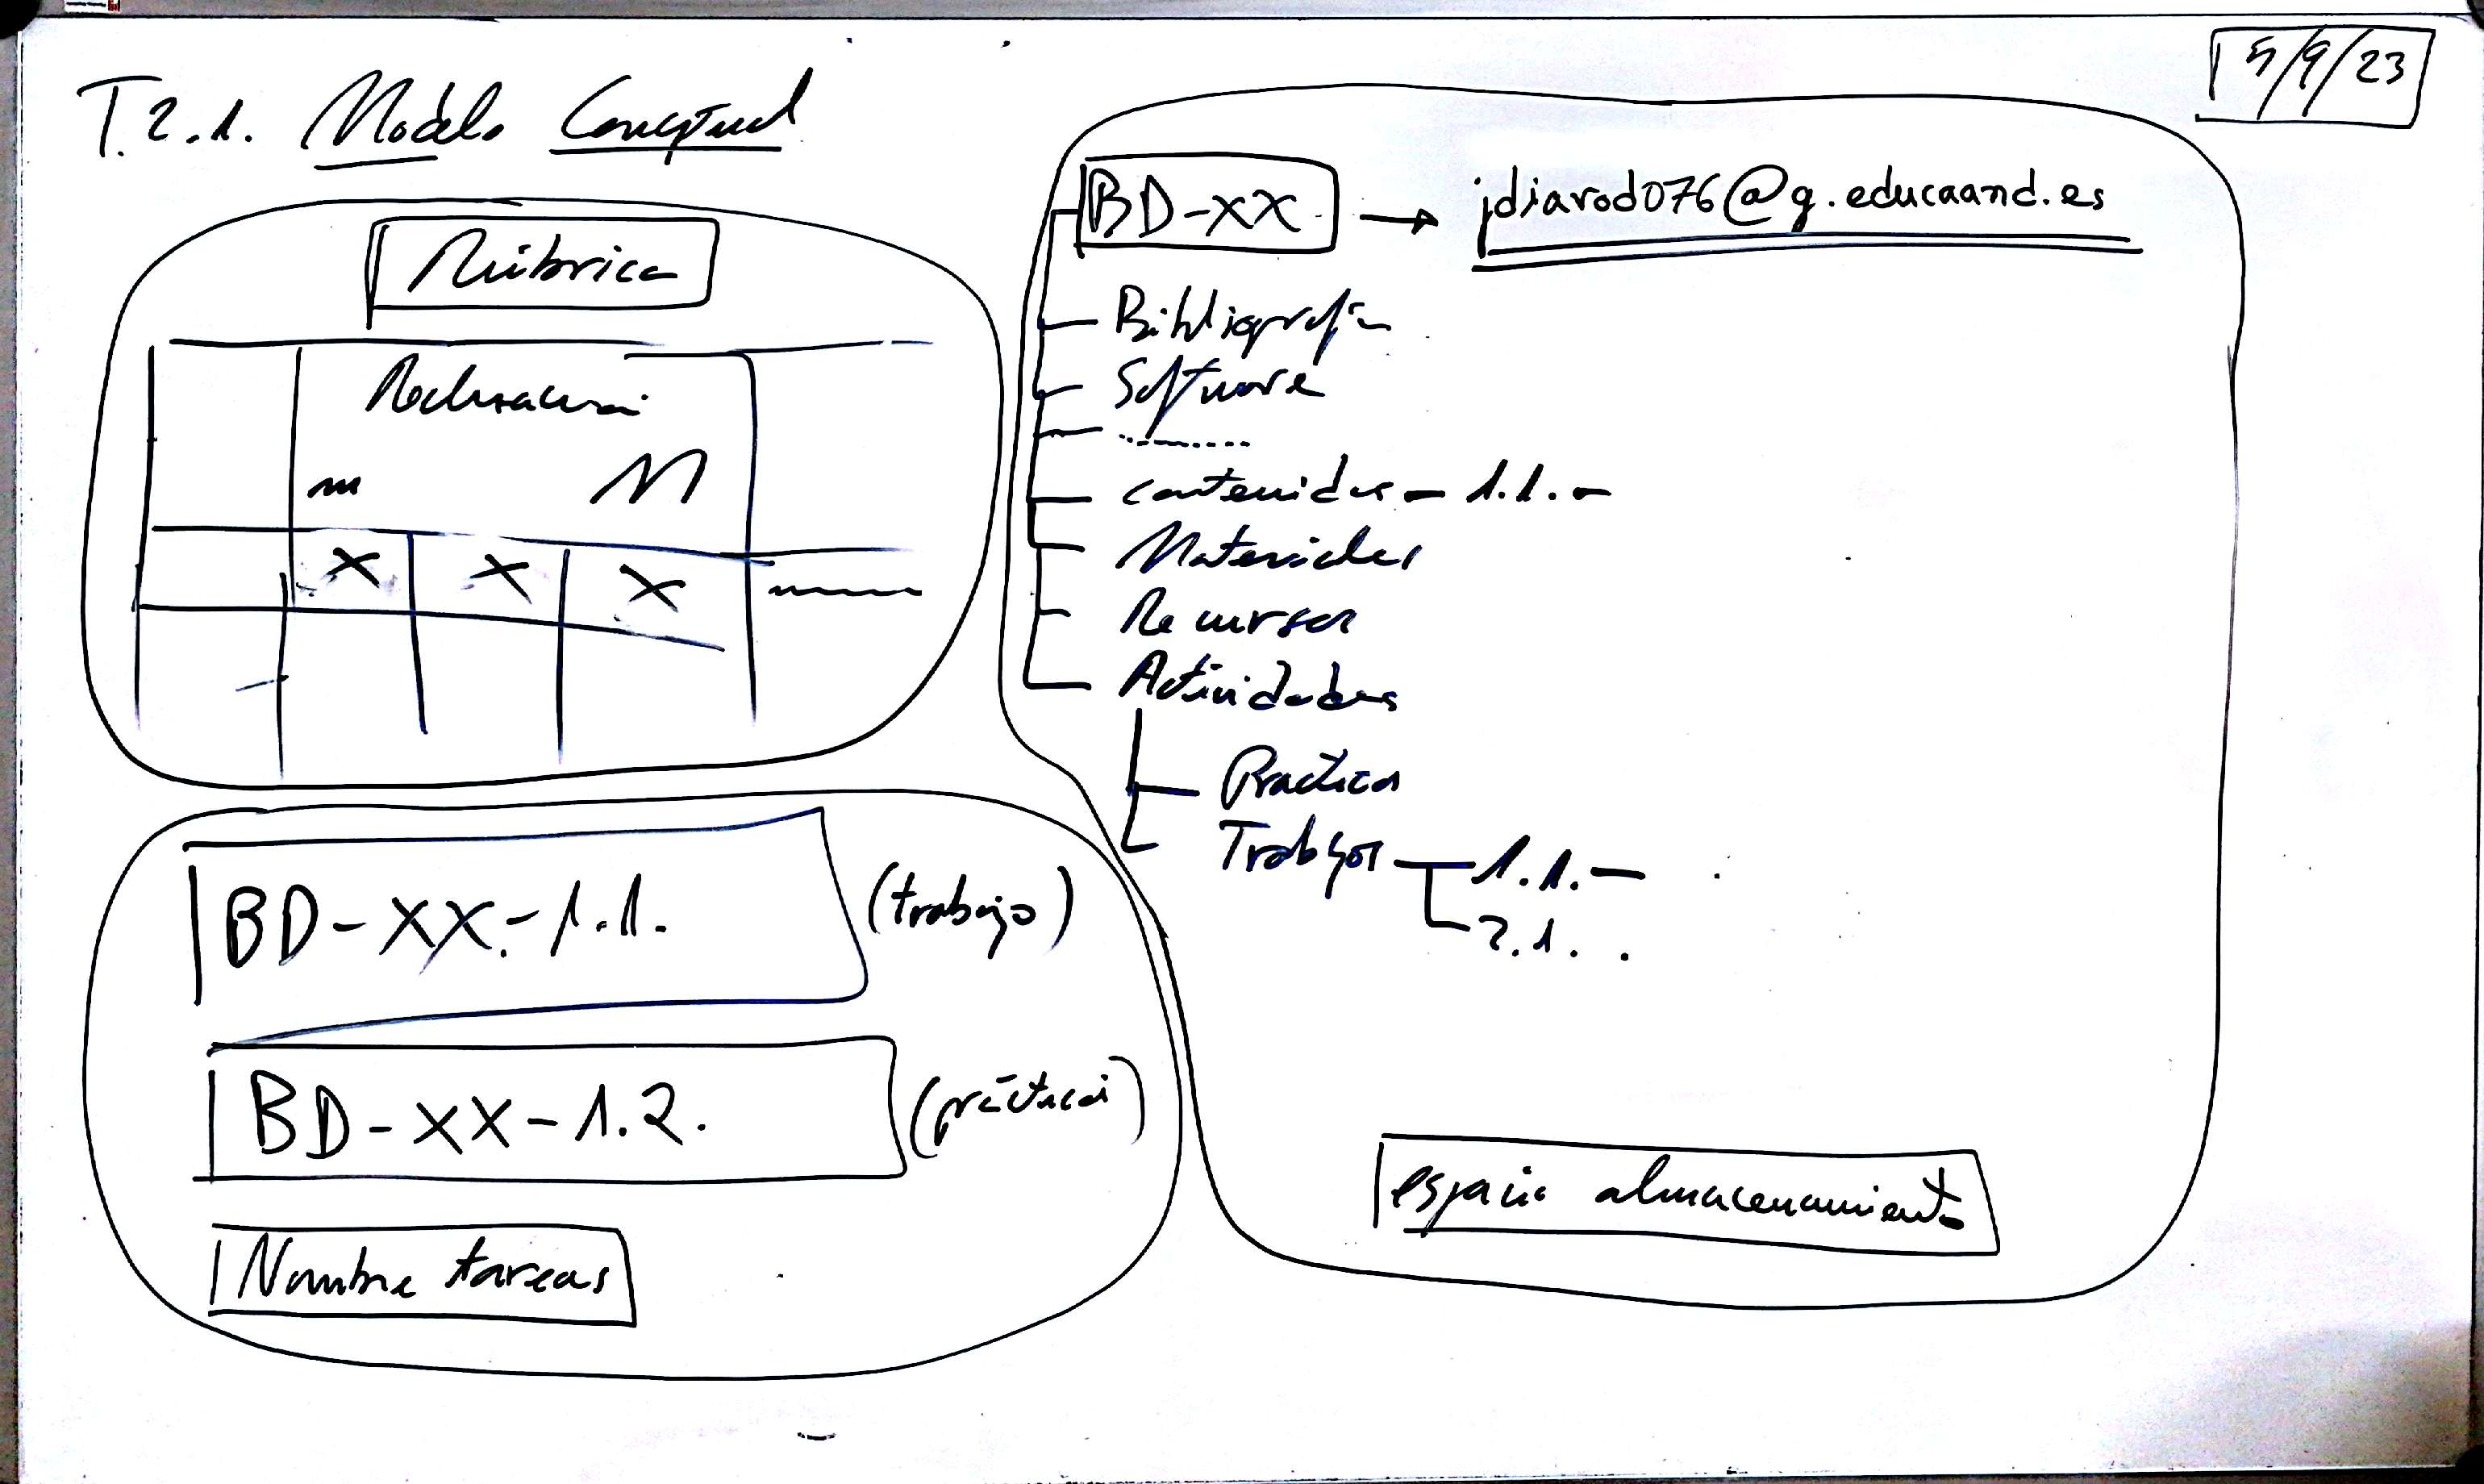 T.2.1. Modelo Conceptual
5/9/23
Rúbrica
m M
X X X
BD-XX-1.1. (trabajo)
BD-XX-1.2. (prácticas)
Nombre tareas
BD-XX → jdiarod076@g.educaand.es
Bibliografía
Software
..........
contenidos - 1.1. -
Materiales
Recursos
Actividades
Practicas
Trabajos 1.1. -
2.1. .
espacio almacenamiento